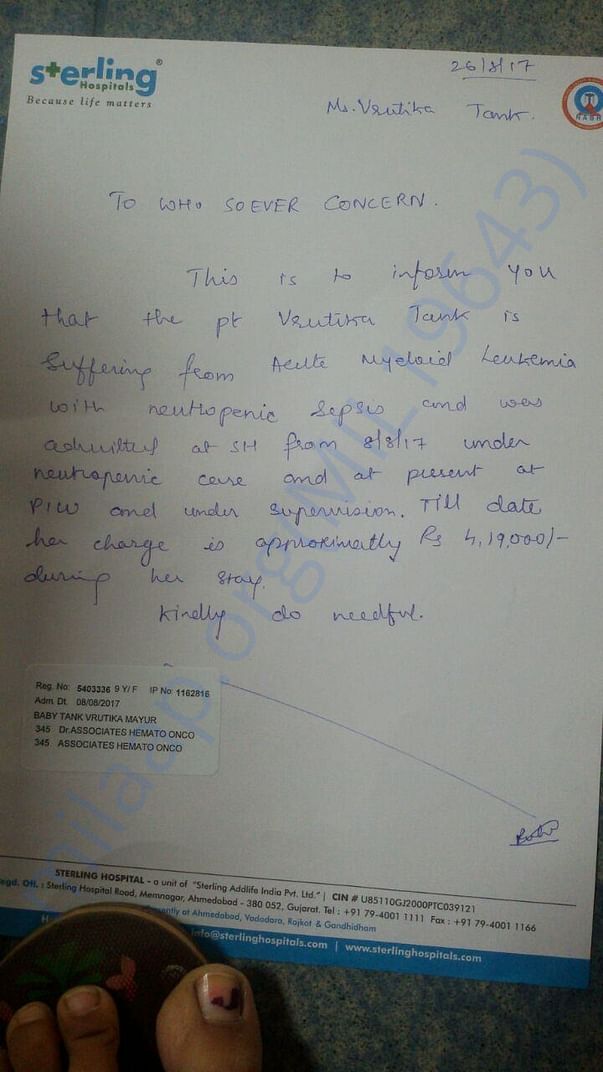 sterling
Hospitals
Because life matters
26/8/17
Ms. Vrutika Tank.
TO WHO SOEVER CONCERN.
This is to inform you
that the pt Vrutika Tank is
suffering from Acute Myeloid Leukemia
with neutropenic sepsis and was
admitted at SH from 8/8/17 under
neutropenic care and at present at
PICU and under supervision. Till date
her charge is approximatly Rs 4,19,000/-
during her stay.
Kindly do needful.
Reg. No: 5403336 9 Y/ F IP No 1162816
Adm. Dt. 08/08/2017
BABY TANK VRUTIKA MAYUR
345 Dr.ASSOCIATES HEMATO ONCO
345 ASSOCIATES HEMATO ONCO
STERLING HOSPITAL - a unit of "Sterling Addlife India Pvt. Ltd." | CIN # U85110GJ2000PTC039121
Regd. Off. : Sterling Hospital Road, Memnagar, Ahmedabad - 380 052, Gujarat. Tel : +91 79-4001 1111 Fax : +91 79-4001 1166
at Ahmedabad, Vadodara, Rajkot & Gandhidham
info@sterlinghospitals.com | www.sterlinghospitals.com
milaap.org(MIL_19643)